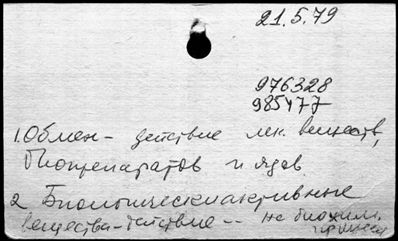 21.5.79
976328
985477
1. Обмен - действие лек. веществ,
биопрепаратов и ядов
2 Биологически активные
вещества - действие -- на биохим.
процессы